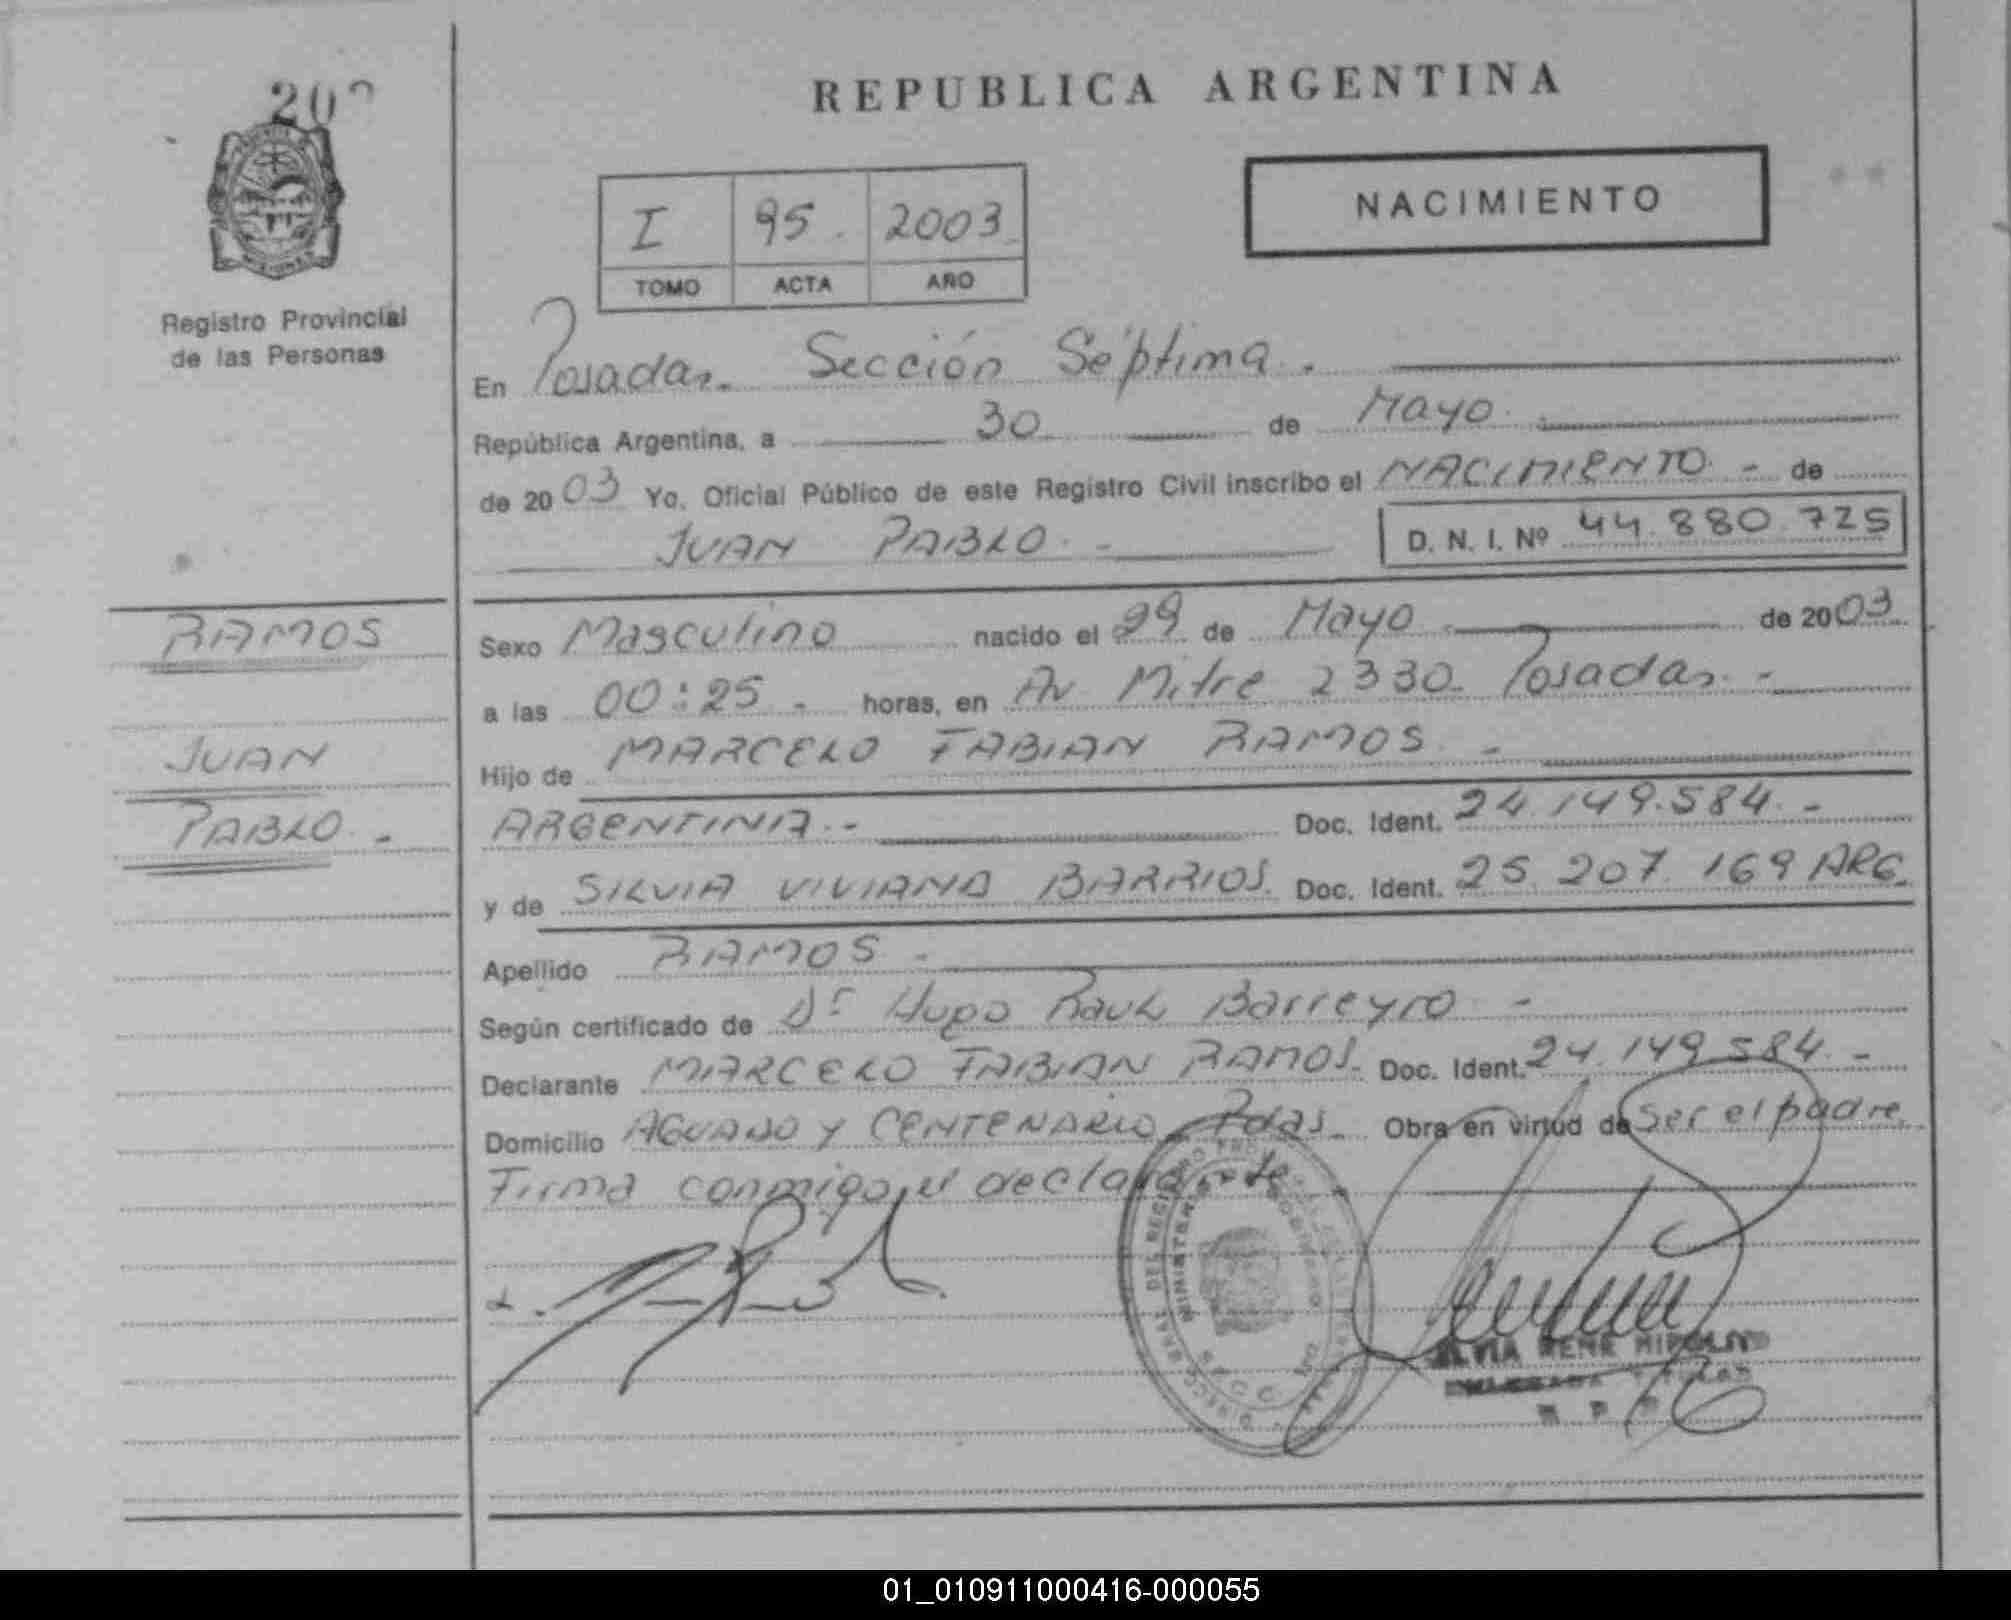 REPUBLICA ARGENTINA
NACIMIENTO
I 95. 2003
TOMO ACTA AÑO
Registro Provincial
de las Personas
En Posadas. Sección Séptima.
República Argentina, a 30 de Mayo
de 2003 Yo, Oficial Público de este Registro Civil inscribo el NACIMIENTO - de
JUAN PABLO - D. N. I. Nº 44.880.725
RAMOS
JUAN
PABLO. -
Sexo Masculino nacido el 29 de Mayo de 2003
a las 00:25 - horas, en Av Mitre 2330. Posadas. -
Hijo de MARCELO FABIAN RAMOS -
ARGENTINA. - Doc. Ident. 24.149.584. -
y de SILVIA VIVIANA BARRIOS. Doc. Ident. 25.207.169 ARG.
Apellido RAMOS -
Según certificado de Dr Hugo Raul Barreyro -
Declarante MARCELO FABIAN RAMOS. Doc. Ident. 24.149.584. -
Domicilio AGUADO Y CENTENARIO Pdas. Obra en virtud de ser el padre.
Firma conmigo el declarante
RENE HIPOLITO
01_010911000416-000055